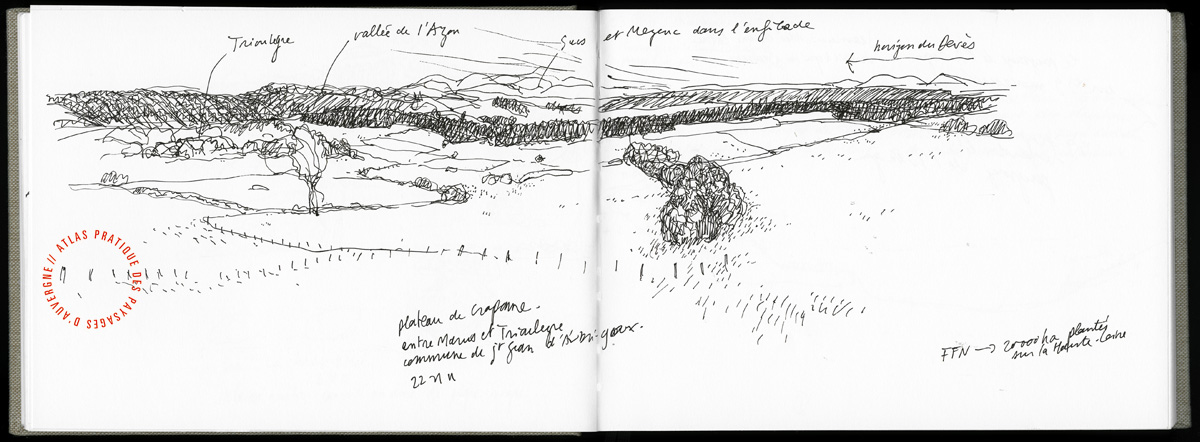 Trioulegre
vallée de l'Arzon
Sucs et Mezenc dans l'enfilade
horizon du Devès
ATLAS PRATIQUE DES PAYSAGES D'AUVERGNE //
plateau de Craponne.
entre Marus et Trioulegre
commune de St Jean d'Aubrigoux.
22
FFN → 20000 ha plantés
sur la Haute-Loire